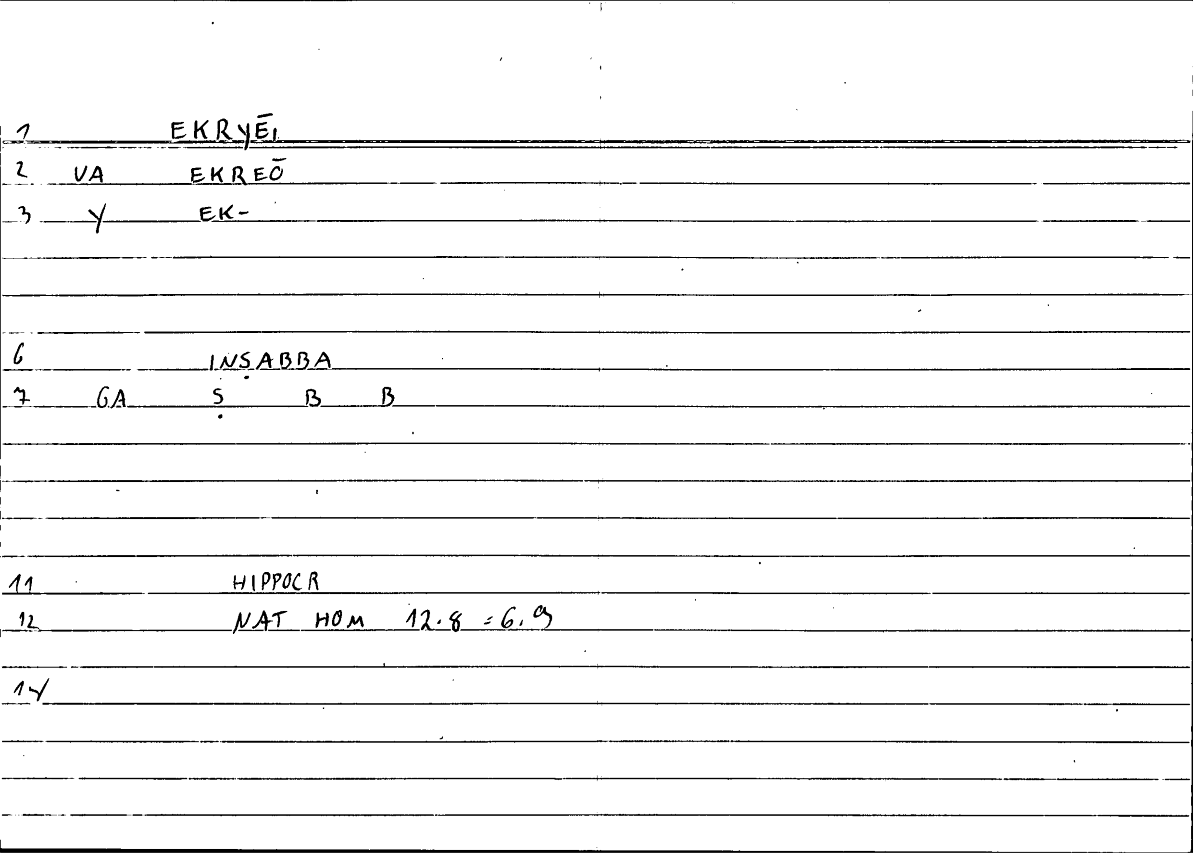 1 EKRYĒI
2 VA EKREŌ
3 Y EK-
6 INṢABBA
7 GA Ṣ B B
11 HIPPOCR
12 NAT HOM 12.8 = 6.9
14